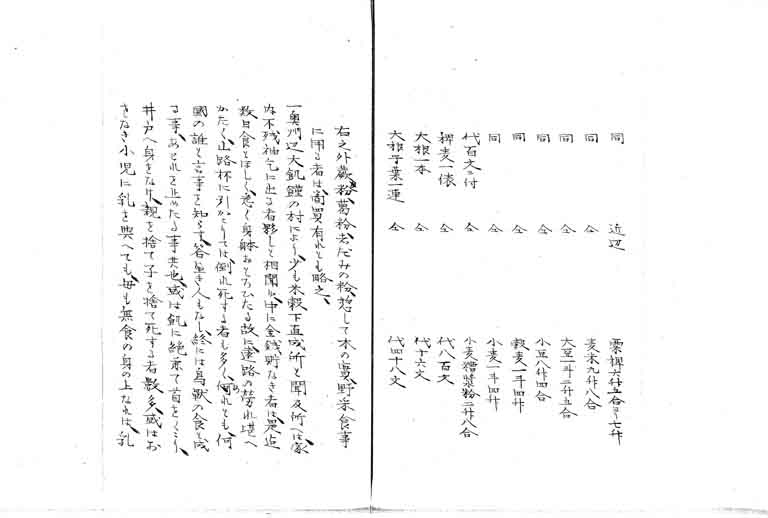 同 近辺 粟稗六升五合ヨリ七升
同 仝 麦米九升八合
同 仝 大豆一斗二升五合
同 仝 小豆八升四合
同 仝 殻麦一斗四升
同 仝 小麦一斗四升
代百文ニ付 仝 小麦 粉二升八合
稗麦一俵 仝 代八百文
大根一本 仝 代十六文
大根干葉一連 仝 代四十八文
右之外蕨粉葛粉 だみの粉惣して木の実野菜食事
に用る者は商買有れとも略之
一奥州辺大飢饉の村により少も米穀下直成所と聞及所へは家
内不残袖乞に出る者夥しと相聞ル中に金銭貯なき者は
数日食とほしく悉く身躰おとろひたる故に遠路の労れ堪へ
かたく山路抔に引かゝりては倒れ死する者も多く倒れとも何
国の誰と言事を知らす 人もなし終には鳥獣の食と成
る事あとれを止めたる事共也或は飢に絶兼て首をくゝり
井戸へ身をなけ親を捨て子を捨て死する者数多或はお
さなき小児に乳を与へても母も無食の身の上なれは乳